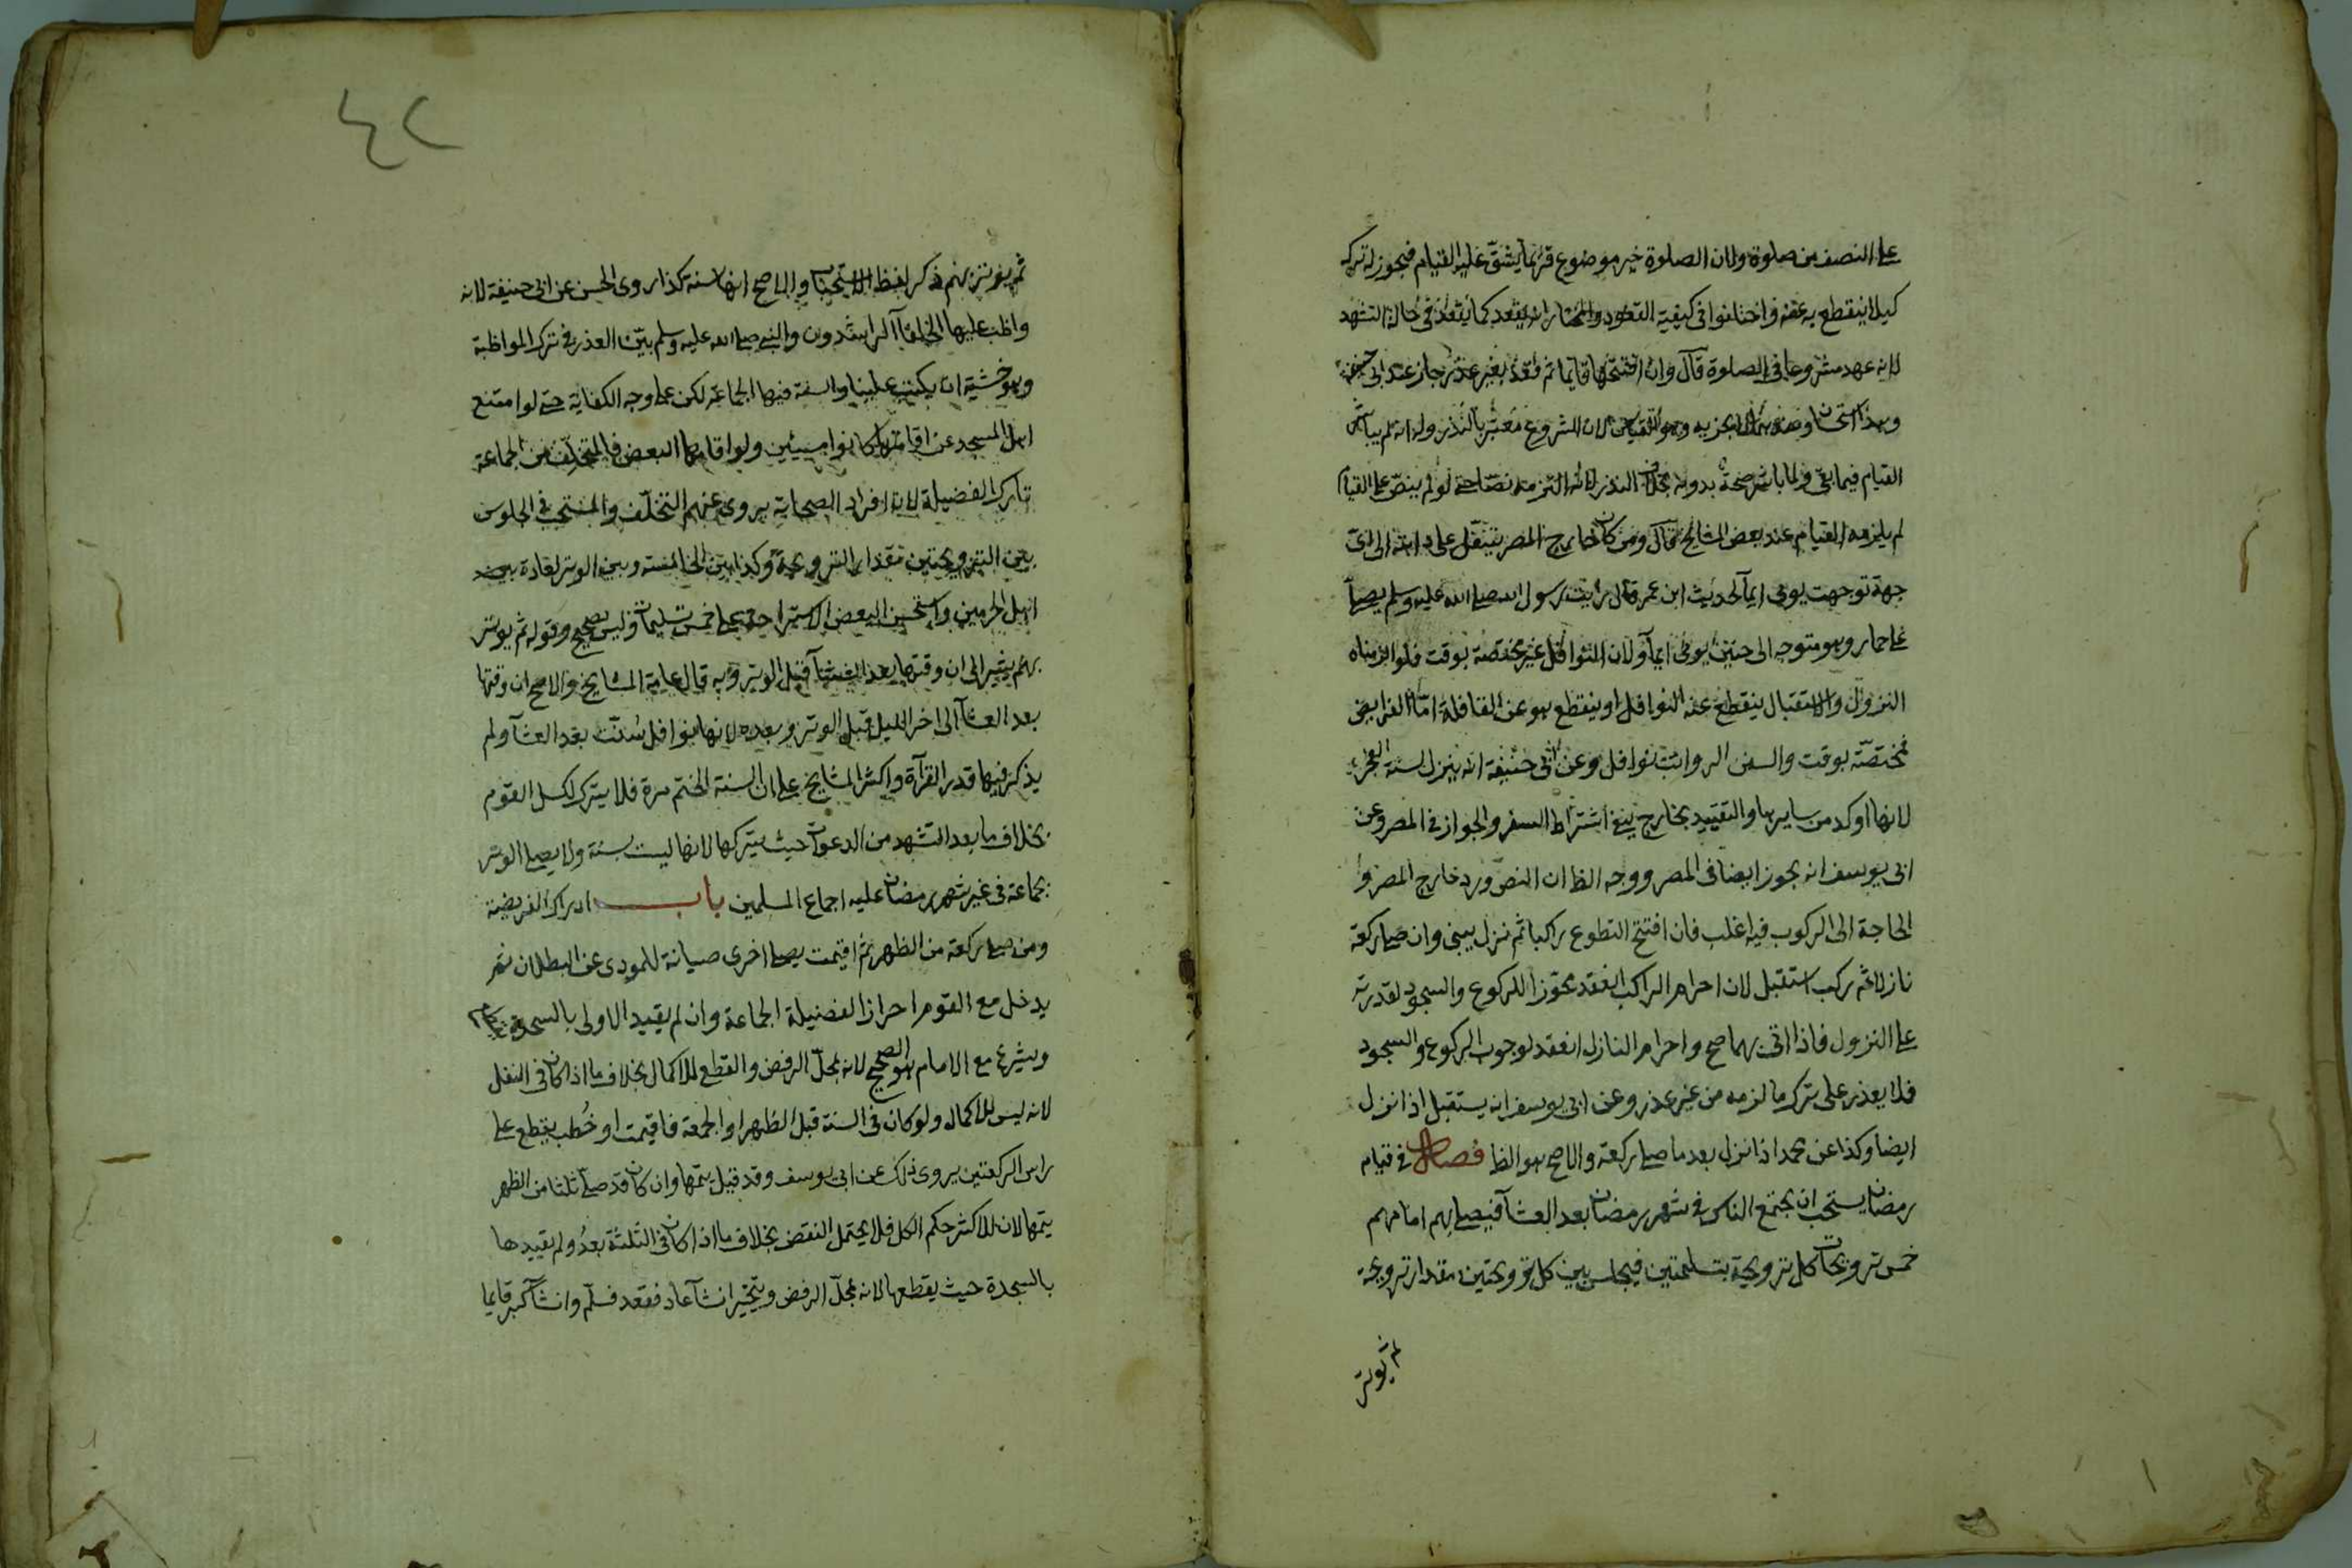 على النصف من صلوة ولان الصلوة خير موضوع فربما يشق عليه القيام فيجوز له تركه
كيلا ينقطع به عنه واختلفوا في كيفية القعود والمختار ان يقعد كما يقعد في حالة التشهد
لانه عهد مشروعا في الصلوة قال وان افتتحها قائما ثم قعد بغير عذر جاز عند ابي حنيفة
وهذا استحسان وعندهما لا يجزيه وهو القياس لان الشروع معتبر بالنذر وله انه لم يباشر
القيام فيما بقي ولما باشر صحة بدونه بخلاف النذر لانه التزمه نصا حتى لو لم ينص على القيام
لم يلزمه القيام عند بعض المشايخ قال ومن كان خارج المصر يتنفل على دابته الى اي
جهة توجهت يومي ايمآ لحديث ابن عمر قال رايت رسول الله صلى الله عليه وسلم يصلي
على حمار وهو متوجه الى خيبر يومى ايمآ ولان النوافل غير مختصة بوقت فلو الزمناه
النزول والاستقبال ينقطع عنه النوافل او ينقطع هو عن القافلة اما الفرايض
مختصة بوقت والسنن الرواتب نوافل وعن ابي حنيفة انه ينزل لسنة الفجر
لانها اوكد من سايرها والتقييد بخارج ينفي اشتراط السفر والجواز في المصر وعن
ابي يوسف انه يجوز ايضا في المصر ووجه الظا ان النص ورد خارج المصر و
الحاجة الى الركوب فيه اغلب فان افتتح التطوع راكبا ثم نزل يبنى وان صلى ركعة
نازلا ثم ركب استقبل لان احرام الراكب انعقد مجوزا للركوع والسجود لقدرته
على النزول فاذا اتى بهما صح واحرام النازل انعقد لوجوب الركوع والسجود
فلا يقدر على ترك ما لزمه من غير عذر وعن ابي يوسف انه يستقبل اذا نزل
ايضا وكذا عن محمد اذا نزل بعد ما صلى ركعة والاصح هو الظا فصل في قيام
رمضان يستحب ان يجتمع الناس في شهر رمضان بعد العشآ فيصلي بهم امامهم
خمس ترويحات كل ترويحة بتسليمتين فيجلس بين كل ترويحتين مقدار ترويحة
ثم يوتر
٤٢
ثم يوتر بهم ذكر لفظ الاستحباب والاصح انها سنة كذا روى الحسن عن ابي حنيفة لانه
واظب عليها الخلفآ الراشدون والنبي صلى الله عليه وسلم بين العذر في ترك المواظبة
وهو خشية ان يكتب علينا والسنة فيها الجماعة لكن على وجه الكفاية حتى لو امتنع
اهل المسجد عن اقامتها كانوا مسيئين ولو اقامها البعض فالمتخلف من الجماعة
تارك الفضيلة لان افراد الصحابة يروى عنهم التخلف والمستحب في الجلوس
بين الترويحتين مقدار الترويحة وكذا بين الخامسة وبين الوتر لعادة
اهل الحرمين واستحسن البعض الاستراحة على خمس تسليمات وليس بصحيح وقوله ثم يوتر
بهم يشير الى ان وقتها بعد العشآ قبل الوتر وبه قال عامة المشايخ والاصح ان وقتها
بعد العشآ الى اخر الليل قبل الوتر وبعده لانها نوافل سنت بعد العشآ ولم
يذكر فيها قدر القرآة واكثر المشايخ على ان السنة الختم مرة فلا يترك لكسل القوم
بخلاف ما بعد التشهد من الدعوات حيث يتركها لانها ليست بسنة ولا يصلى الوتر
بجماعة في غير شهر رمضان عليه اجماع المسلمين باب ادراك الفريضة
ومن صلى ركعة من الظهر ثم اقيمت يصلي اخرى صيانة للمودى عن البطلان ثم
يدخل مع القوم احرازا لفضيلة الجماعة وان لم يقيد الاولى بالسجدة
ويشرع مع الامام هو الصحيح لانه بمحل الرفض والقطع للاكمال بخلاف ما اذا كان في النفل
لانه ليس للاكمال ولو كان في السنة قبل الظهر او الجمعة فاقيمت او خطب يقطع على
راس الركعتين يروى ذلك عن ابي يوسف وقد قيل يتمها وان كان قد صلى ثلثا من الظهر
يتمها لان للاكثر حكم الكل فلا يحتمل النقض بخلاف ما اذا كان في الثلثة بعد ولم يقيدها
بالسجدة حيث يقطعها لانه بمحل الرفض ويتخير ان شآ عاد فقعد فسلم وان شآ كبر قايما